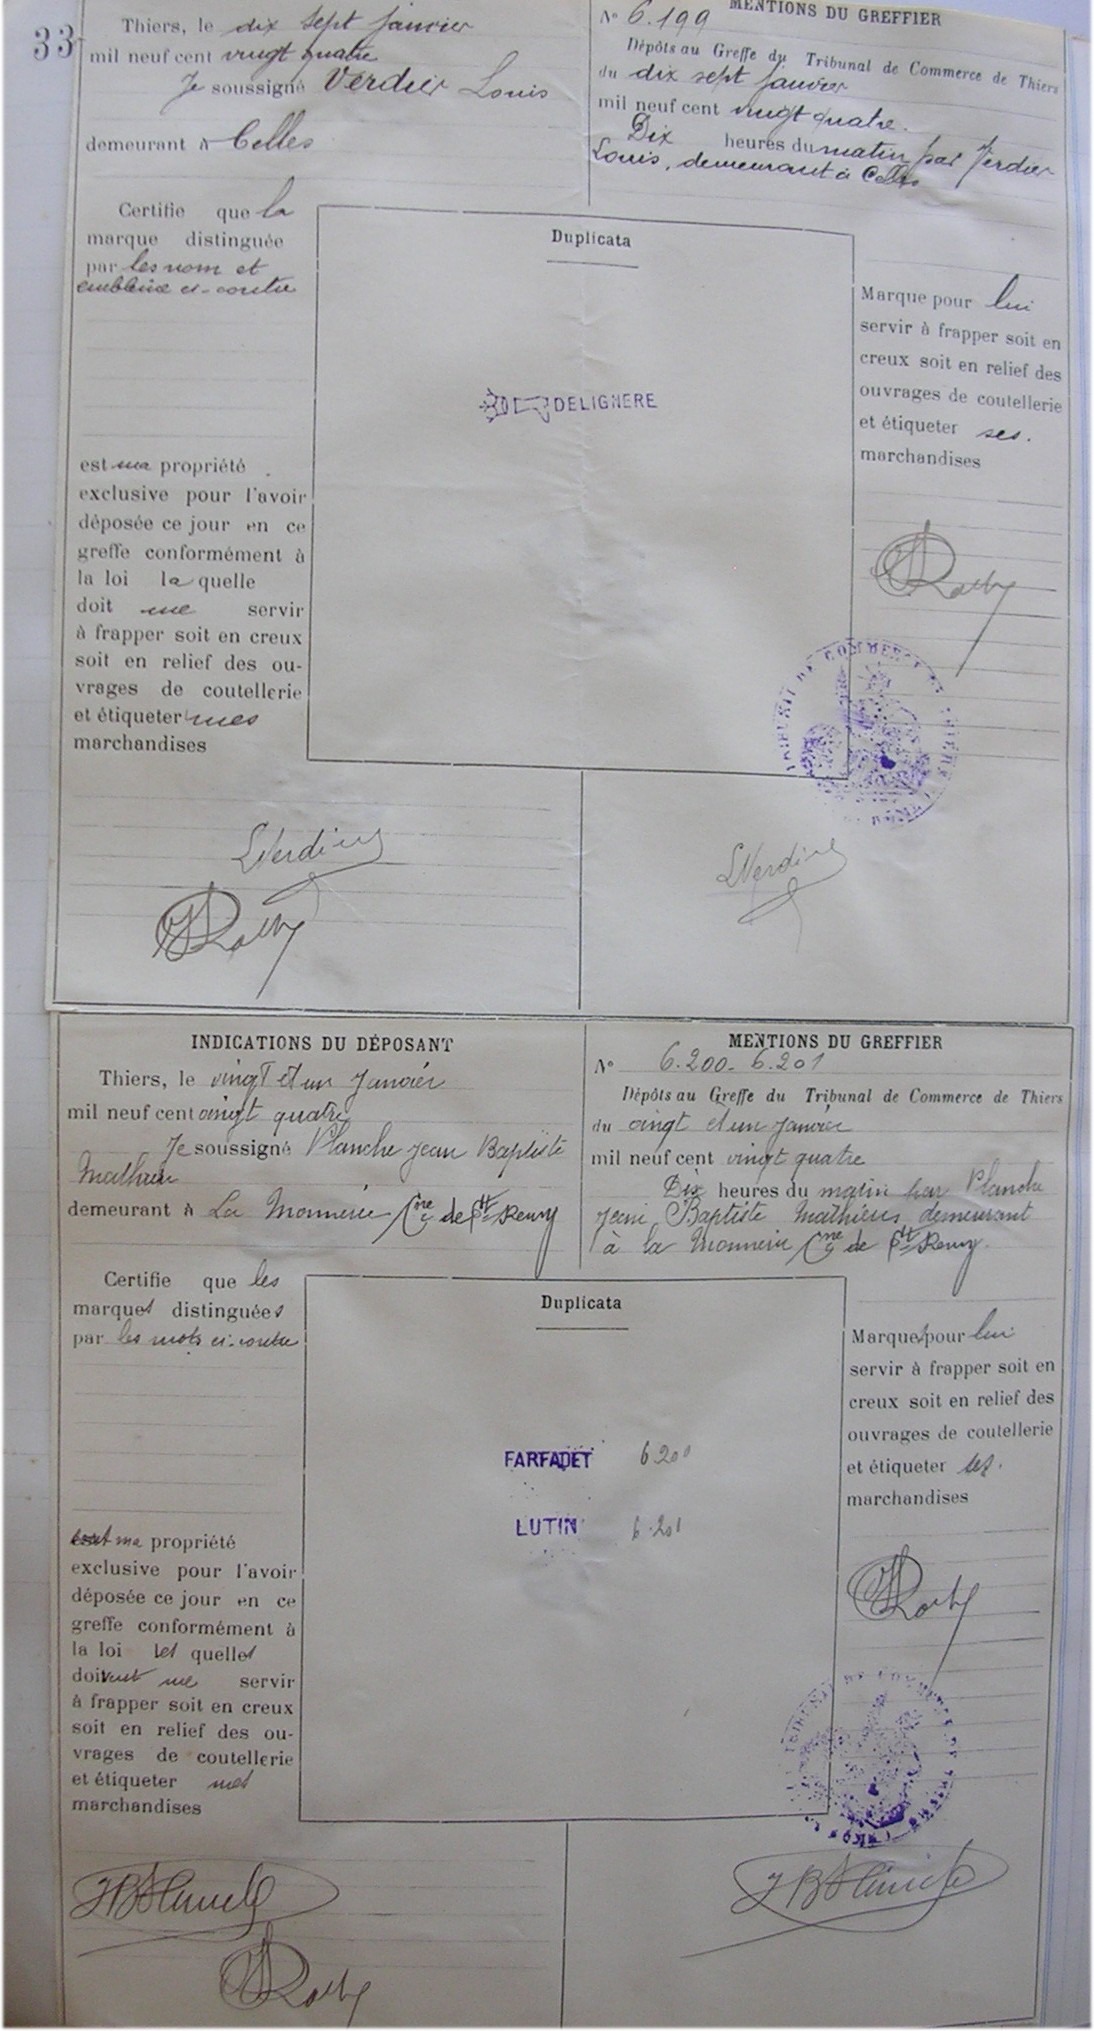 33
Thiers, le dix sept janvier
mil neuf cent vingt quatre
Je soussigné Verdier Louis
demeurant à Celles
Certifie que la
marque distinguée
par les nom et
emblème ci-contre
est ma propriété
exclusive pour l'avoir
déposée ce jour en ce
greffe conformément à
la loi laquelle
doit me servir
à frapper soit en creux
soit en relief des ou-
vrages de coutellerie
et étiqueter mes
marchandises
MENTIONS DU GREFFIER
N° 6.199
Dépôts au Greffe du Tribunal de Commerce de Thiers
du dix sept janvier
mil neuf cent vingt quatre.
Dix heures du matin par Verdier
Louis, demeurant à Celles
Duplicata
DELIGNERE
Marque pour lui
servir à frapper soit en
creux soit en relief des
ouvrages de coutellerie
et étiqueter ses.
marchandises
LVerdier
LVerdier
INDICATIONS DU DÉPOSANT
Thiers, le vingt et un Janvier
mil neuf cent vingt quatre
Je soussigné Planche Jean Baptiste
Mathieu
demeurant à La Monnerie Cne de St Remy
Certifie que les
marques distinguées
par les mots ci-contre
sont ma propriété
exclusive pour l'avoir
déposée ce jour en ce
greffe conformément à
la loi lesquelles
doivent me servir
à frapper soit en creux
soit en relief des ou-
vrages de coutellerie
et étiqueter mes
marchandises
MENTIONS DU GREFFIER
N° 6.200-6.201
Dépôts au Greffe du Tribunal de Commerce de Thiers
du vingt et un Janvier
mil neuf cent vingt quatre
Dix heures du matin par Planche
Jean Baptiste Mathieu demeurant
à la Monnerie Cne de St Remy.
Duplicata
FARFADET 6.200
LUTIN 6.201
Marque pour lui
servir à frapper soit en
creux soit en relief des
ouvrages de coutellerie
et étiqueter ses.
marchandises